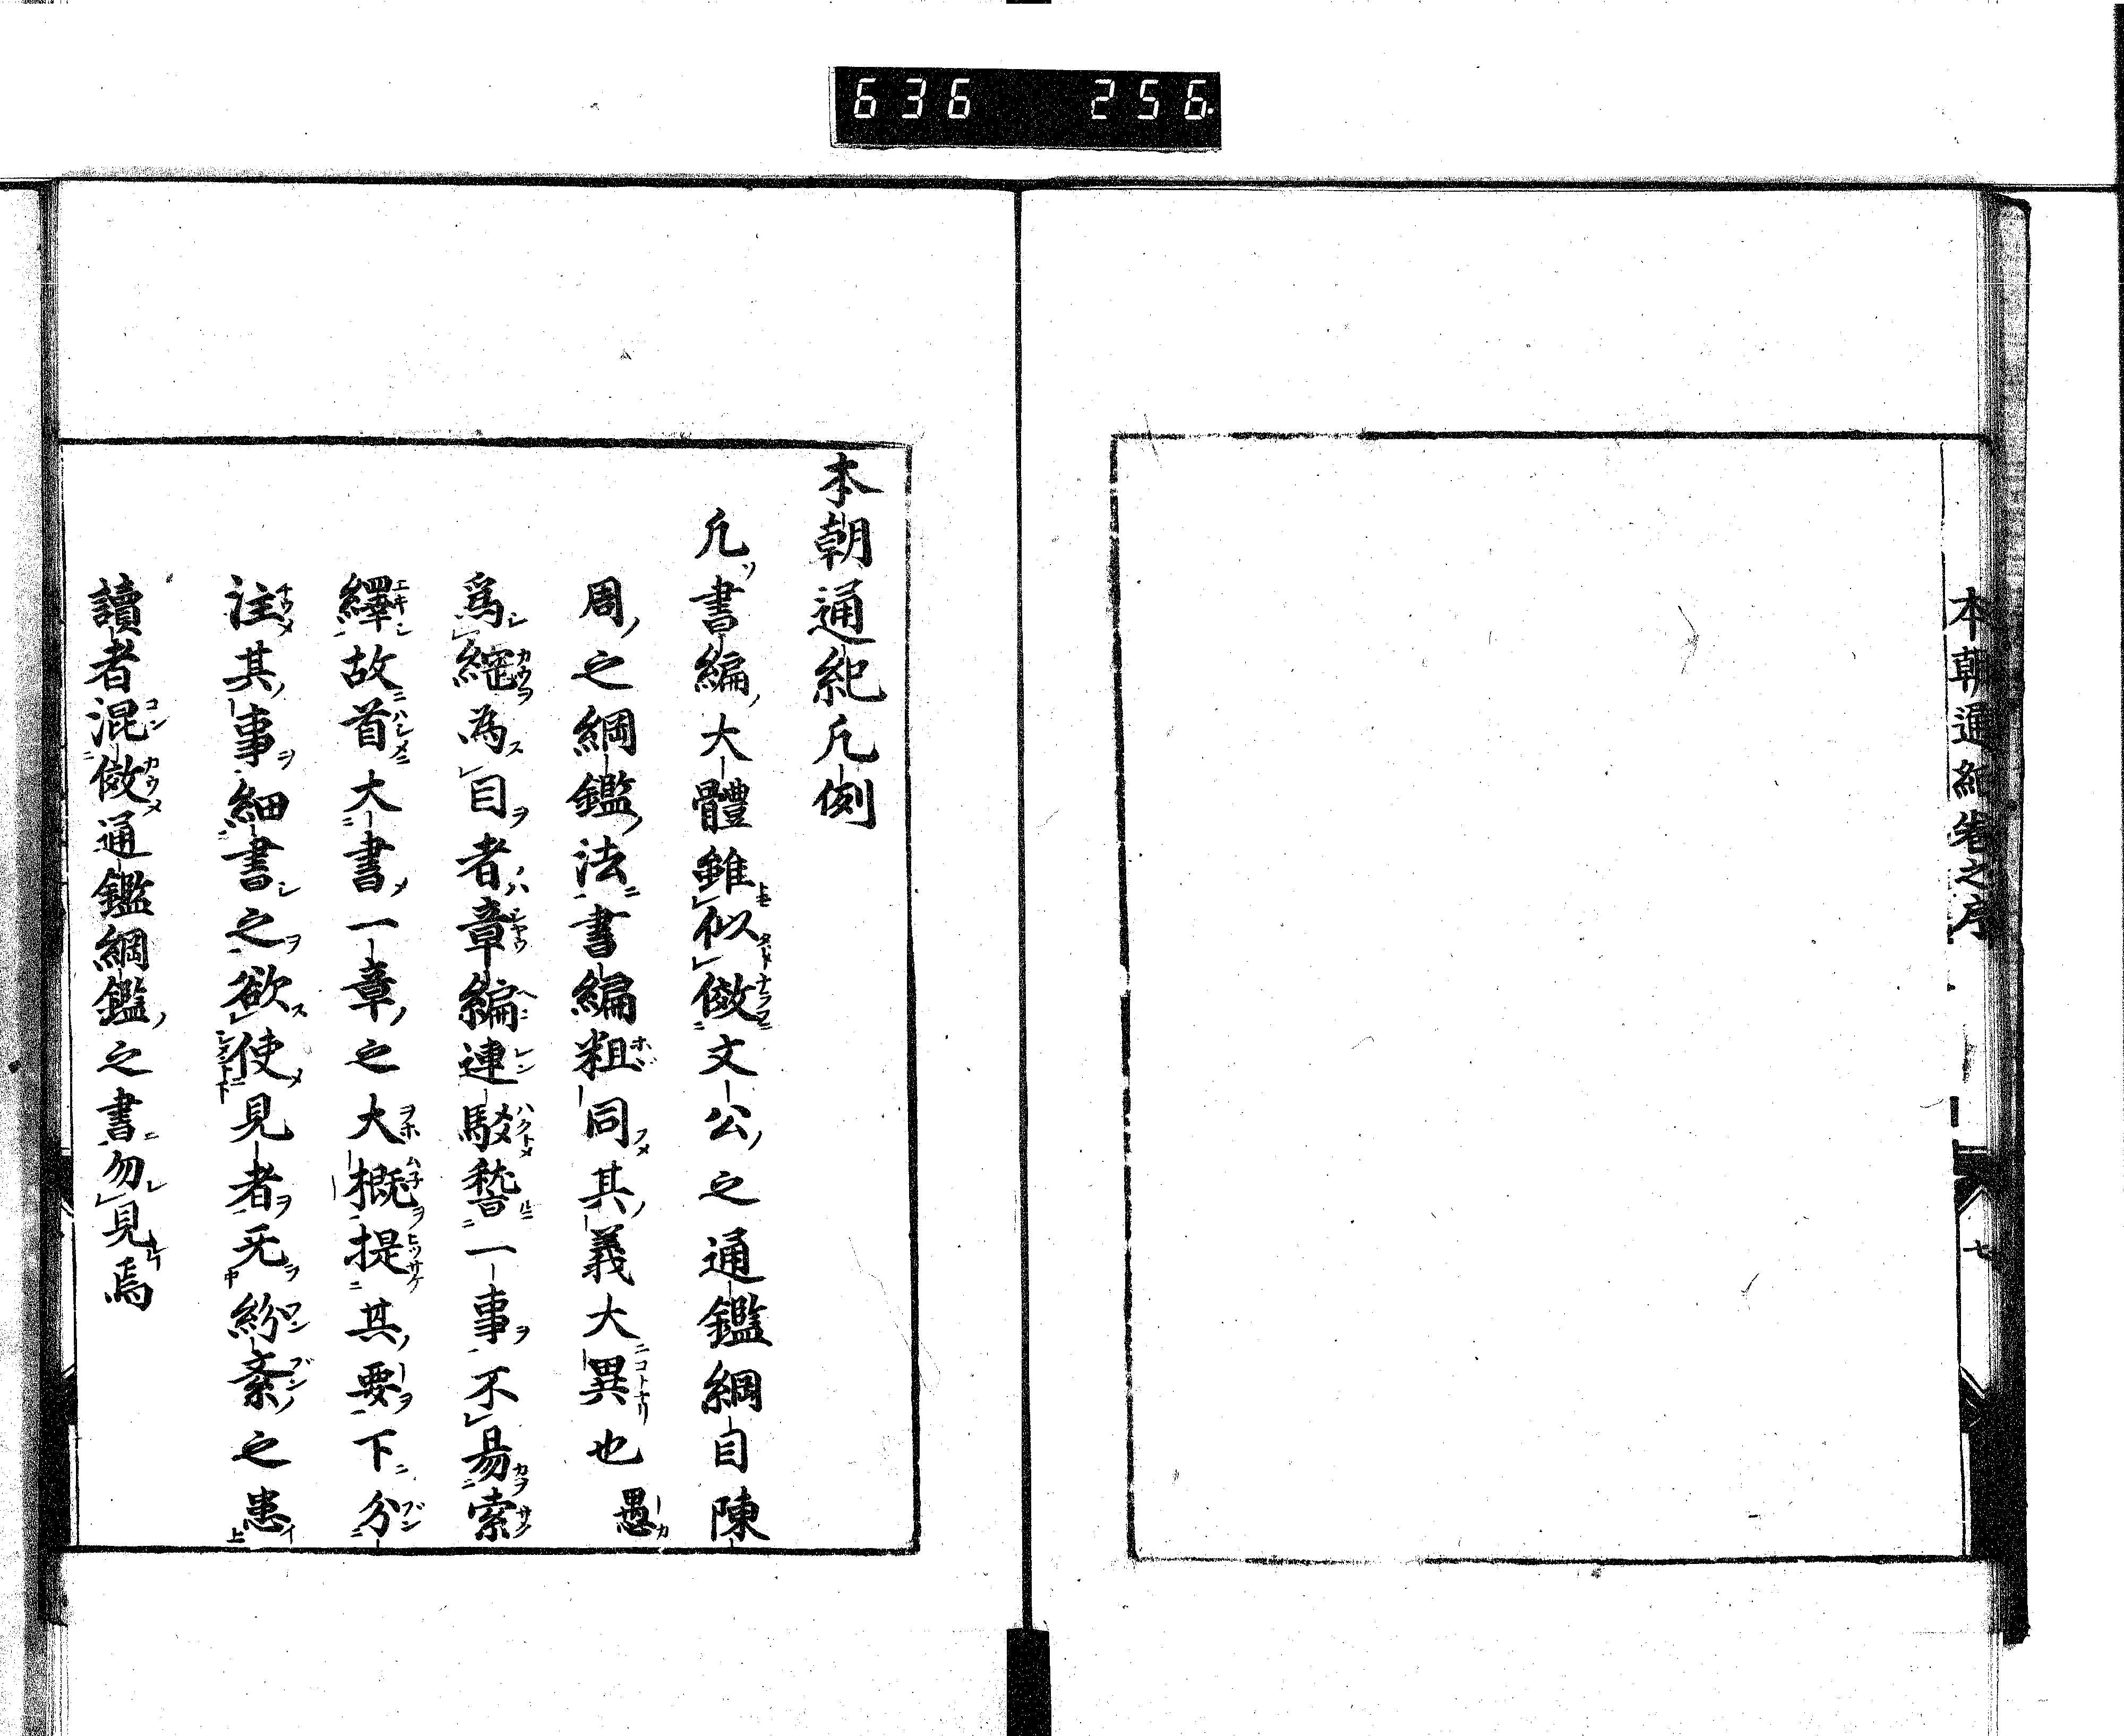 636 256
本朝通紀卷之序
七
本朝通紀凡例
凡書編大體雖似倣文公之通鑑綱目陳
周之綱鑑法書編粗同其義大異也愚
爲綱為目者章編連駁嵆一事不易索
繹故首大書一章之大概提其要下分
注其事細書之欲使見者无紛紊之患
讀者混倣通鑑綱鑑之書勿見焉